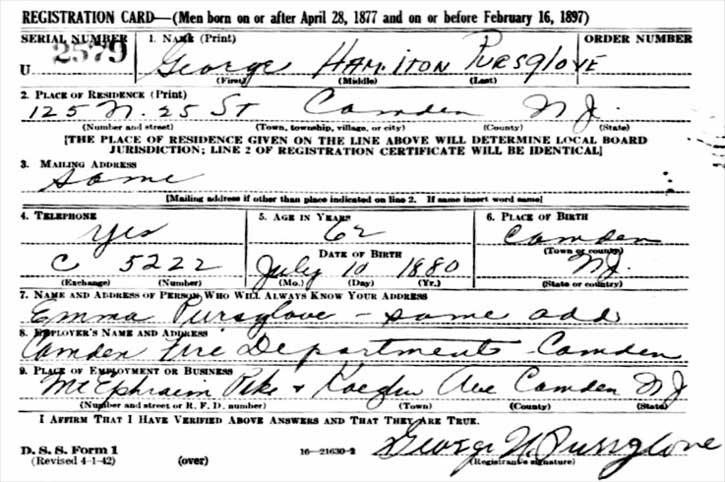 REGISTRATION CARD—(Men born on or after April 28, 1877 and on or before February 16, 1897)
SERIAL NUMBER 1. NAME (Print) ORDER NUMBER
U 2579 George HAMILTON PURSGLOVE
(First) (Middle) (Last)
2. PLACE OF RESIDENCE (Print)
125 N. 25 St Camden N J.
(Number and street) (Town, township, village, or city) (County) (State)
[THE PLACE OF RESIDENCE GIVEN ON THE LINE ABOVE WILL DETERMINE LOCAL BOARD
JURISDICTION; LINE 2 OF REGISTRATION CERTIFICATE WILL BE IDENTICAL]
3. MAILING ADDRESS
Same
[Mailing address if other than place indicated on line 2. If same insert word same]
4. TELEPHONE 5. AGE IN YEARS 6. PLACE OF BIRTH
yes 62 Camden
DATE OF BIRTH (Town or county)
C 5222 July 10 1880 N.J.
(Exchange) (Number) (Mo.) (Day) (Yr.) (State or country)
7. NAME AND ADDRESS OF PERSON WHO WILL ALWAYS KNOW YOUR ADDRESS
Emma Pursglove - same add
8. EMPLOYER'S NAME AND ADDRESS
Camden Fire Department - Camden
9. PLACE OF EMPLOYMENT OR BUSINESS
Mt Ephraim Pike + Ave Camden N J
(Number and street or R. F. D. number) (Town) (County) (State)
I AFFIRM THAT I HAVE VERIFIED ABOVE ANSWERS AND THAT THEY ARE TRUE.
D. S. S. Form 1 16—21630-2 George H. Pursglove
(Revised 4-1-42) (over) (Registrant's signature)